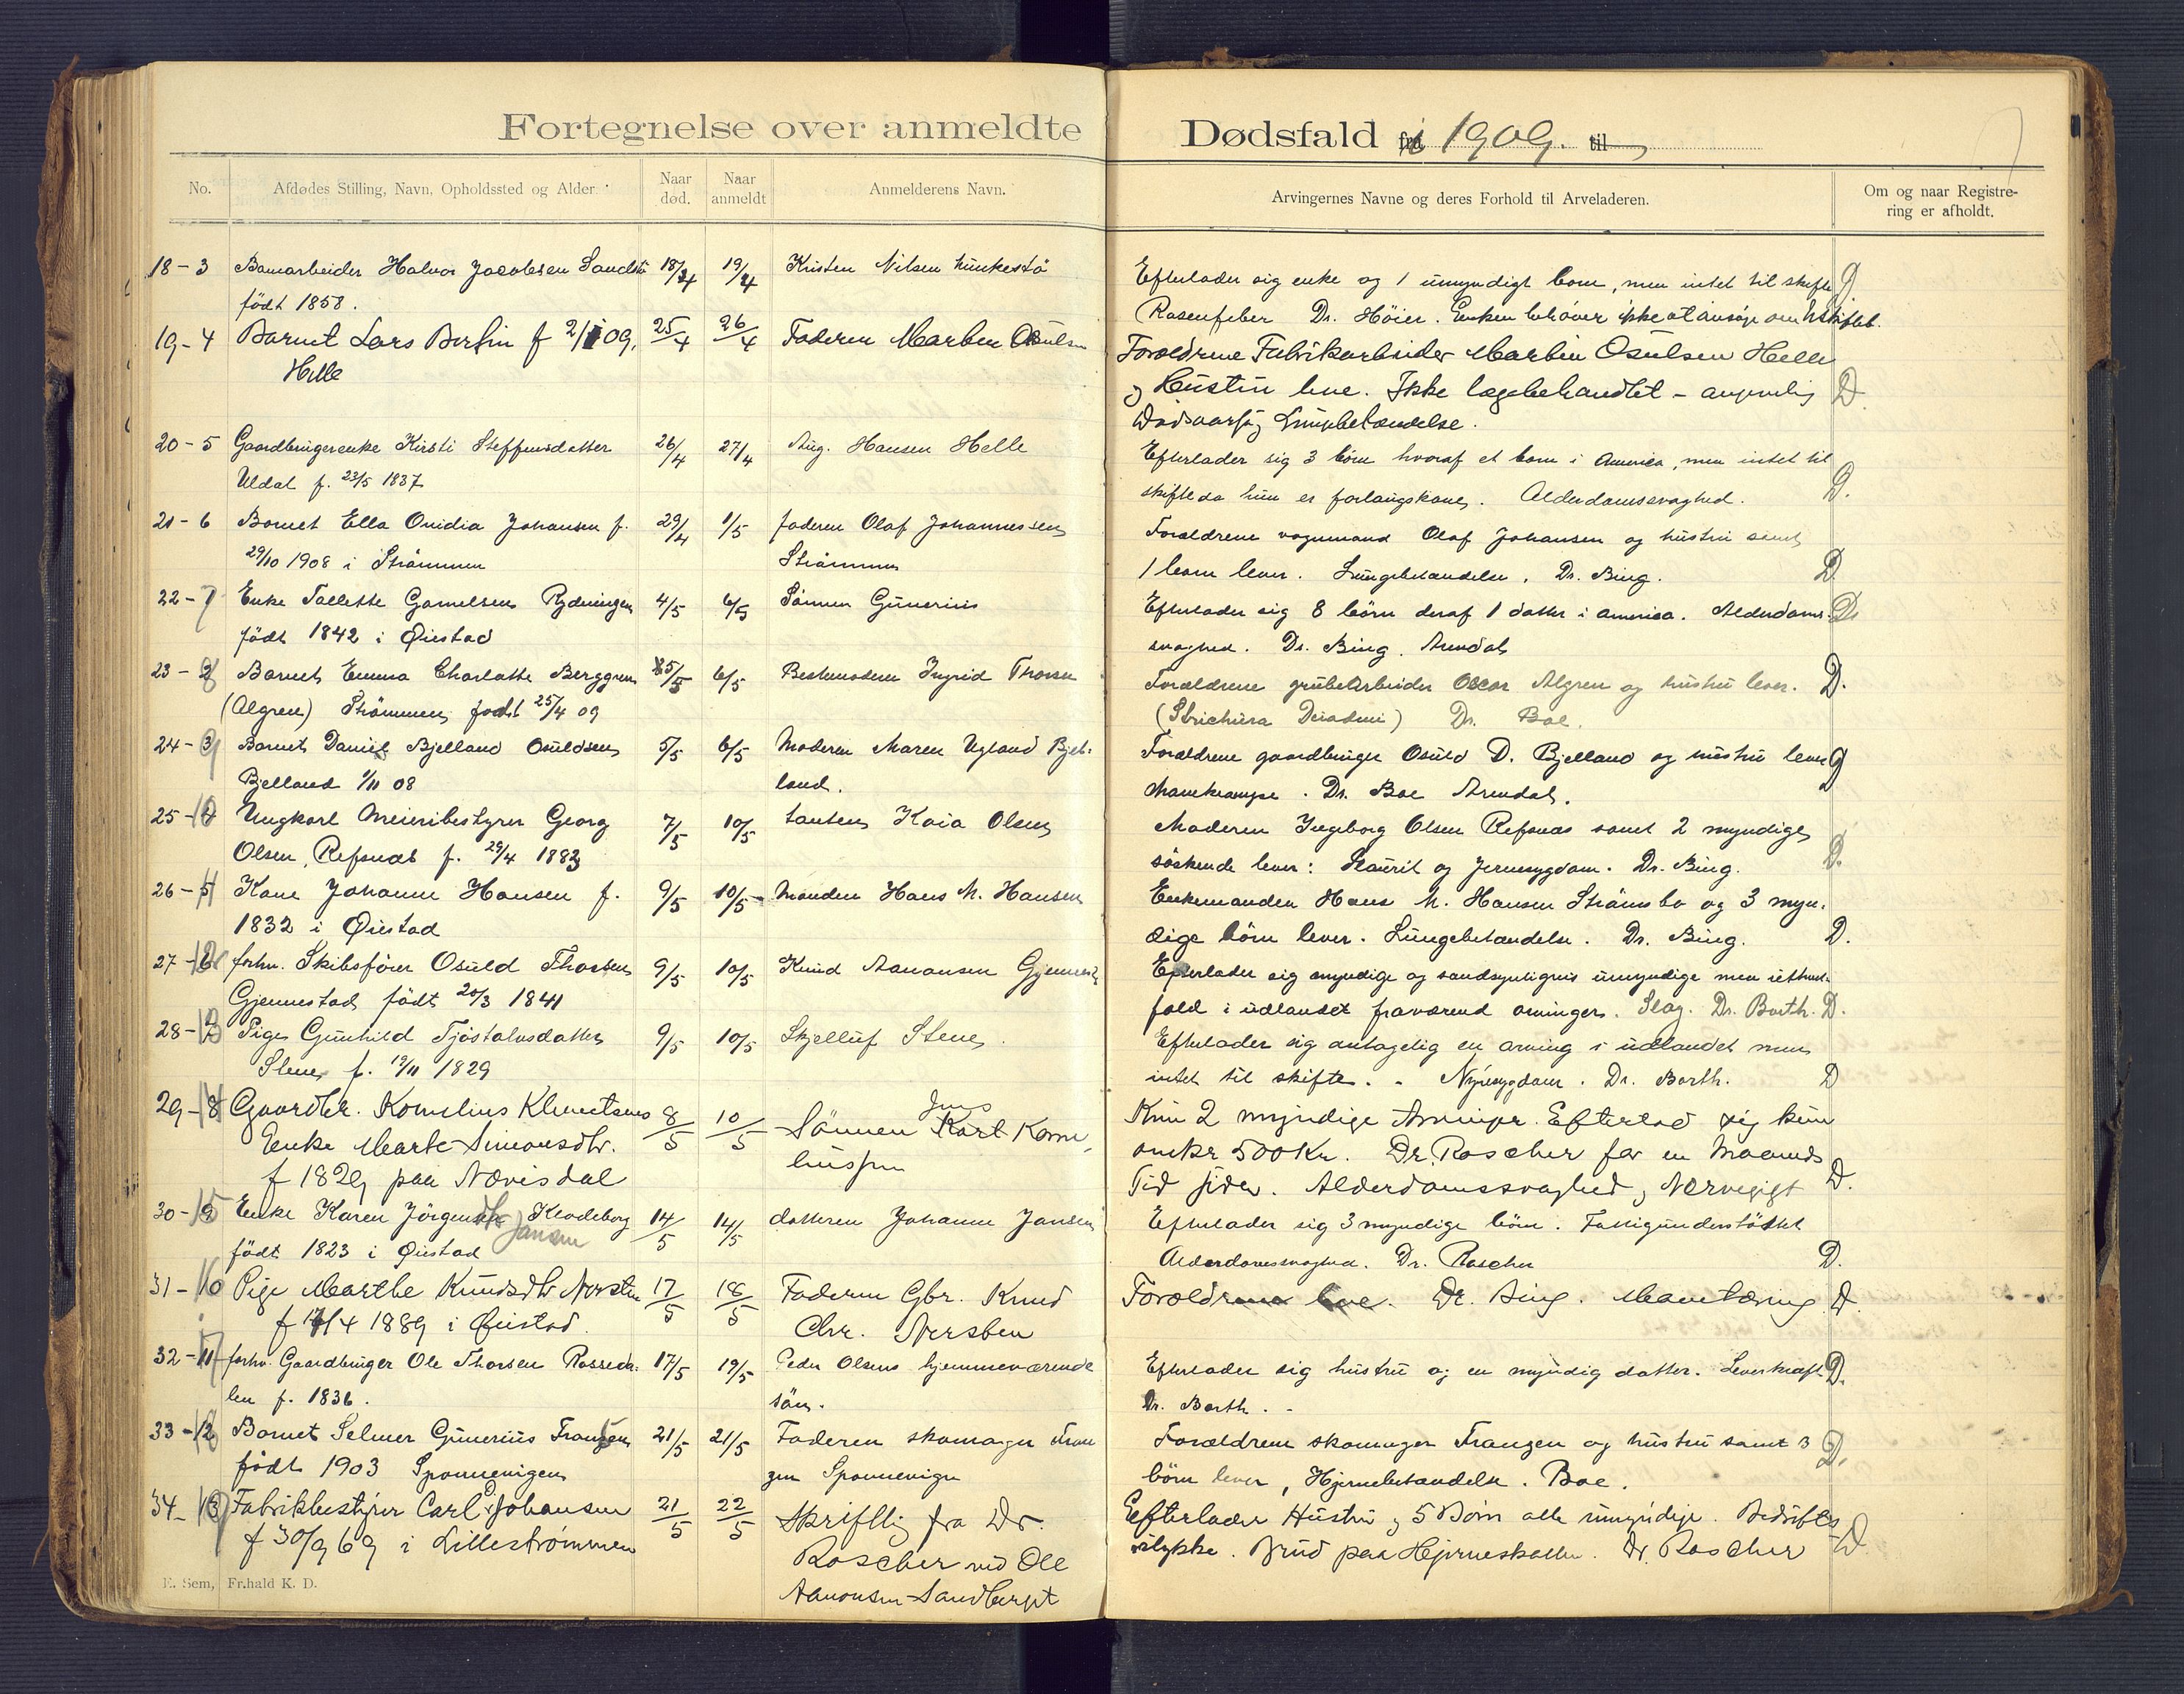 Fortegnelse over anmeldte Dødsfald i 1909. til
No. Afdødes Stilling, Navn, Opholdssted og Alder. Naar død. Naar anmeldt Anmelderens Navn. Arvingernes Navne og deres Forhold til Arveladeren. Om og naar Registrering er afholdt.
18-3 Banearbeider Halvor Jacobsen 18/4 19/4 Kristen Nilsen
født 1858.
Efterlader sig enke og 1 umyndigt barn, men intet til skifte
Rosenfeber Dr. Höier. Enken behöver ikke at ansöge om
19-4 Barnet Lars Berlin f 2/1 09, 25/4 26/4 Faderen Martin Osulsen
Helle
Forældrene Fabrikarbeider Martin Osulsen Helle
og Hustru leve. Ikke lægebehandlet - angivelig
Dødsaarsag Lungebetændelse.
20-5 Gaardbrugerenke Kirsti Steffensdatter 26/4 27/4 Aug. Hansen Helle
Uldal f. 23/5 1837
Efterlader sig 3 börn hvoraf et barn i America, men intet til
skifte da hun er forlangskone. Alderdomssvaghed. D.
21-6 Barnet Ella Ovidia Johansen f. 29/4 1/5 faderen Olaf Johannessen
29/10 1908 i Strömmen Strömmen
Forældrene vognmand Olaf Johansen og hustru samt
1 barn lever. Lungebetændelse. Dr. Bing. D
22-7 Enke Tallette Gamelsen Rydningen 4/5 6/5 Sönnen Gunerius
født 1842 i Øiestad
Efterlader sig 8 börn deraf 1 datter i America. Alderdoms-
svaghed. Dr. Bing. Arendal
23-8 Barnet Emma Charlotte Berggren 5/5 6/5 Bestemoderen Ingrid Thorsen
(Algren) Strömmen, født 25/4 09
Forældrene grubearbeider Oscar Algren og hustru lever. D.
Dr. Boe.
24-9 Barnet Daniel Bjelland Osuldsen 5/5 6/5 Moderen Maren Ugland Bjel-
Bjelland 1/11 08 land.
Forældrene gaardbruger Osuld D. Bjelland og hustru lever
Dr. Boe Arendal.
25-10 Ungkarl Meieribestyrer Georg 7/5 10/5 tanten Kaia Olsen
Olsen, Refsnes f. 29/4 1883
Moderen Ingeborg Olsen Refsnes samt 2 myndige
söskende lever: Dr. Bing. D.
26-11 Kone Johanne Hansen f. 9/5 10/5 Manden Hans M. Hansen
1832 i Øiestad
Enkemanden Hans M. Hansen Strömsbo og 3 myn-
dige börn lever. Lungebetændelse. Dr. Bing. D.
27-12 forhv. Skibsförer Osuld Thorsen 9/5 10/5 Knud Aanonsen
Gjennestad født 20/3 1841
Efterlader sig myndige og sandsynligvis umyndige men iethvert-
fald i udlandet fraværend arvinger. Slag. Dr. Barth. D.
28-13 Pige Gunhild Tjöstolvsdatter 9/5 10/5 Skjelluf Stene.
Stene f. 19/11 1829
Efterlader sig antagelig en arving i udlandet men
intet til skifte. - Nyresygdom. Dr. Barth. D
29-14 Gaardbr. Kornelius Klemetsens 8/5 10/5 Sönnen Jens Korne-
Enke Marte Simonsdtr. liussen
f 1829 paa Nævisdal
Kun 2 myndige Arvinger. Efterlod sig kun
omkr 500 Kr. Dr. Roscher for en Maaneds
Tid siden. Alderdomssvaghed, D.
30-15 Enke Karen Jörgensdtr Klodeborg 14/5 14/5 datteren Johanne Jansen
Jansen
født 1823 i Øiestad
Efterlader sig 3 myndige börn. Fattigunderstöttet
Alderdomssvaghed. Dr. Roscher D.
31-16 Pige Marthe Knudsdtr Nersten 17/5 18/5 Faderen Gbr. Knud
f 4 1889 i Øiestad. Chr. Nersten
Forældrene leve. Dr. Bing. D.
32-17 forhv. Gaardbruger Ole Thorsen Rosseda- 17/5 19/5 Peder Olsens hjemmeværende
len f. 1836. sön.
Efterlader sig hustru og en myndig datter. Leverkræft D.
Dr. Barth. -
33-18 Barnet Selmer Gunerius Franzen 21/5 21/5 Faderen skomager Fran
født 1903 Sponevigen zen Sponevigen
Forældrene skomager Franzen og hustru samt 3 D.
börn lever, Hjernebetændelse. Boe.
34-19 Fabrikbestyrer Carl Johansen 21/5 22/5 Skriftlig fra Dr.
f 30/9 69 i Lillestrømmen Roscher ved Ole
Aanonsen Sandberget
Efterlader Hustru, 5 Börn alle umyndige. Bedrifts
ulykke. Brud paa Hjerneskallen. Dr. Roscher D.
E. Sem, Fr.hald K. D.